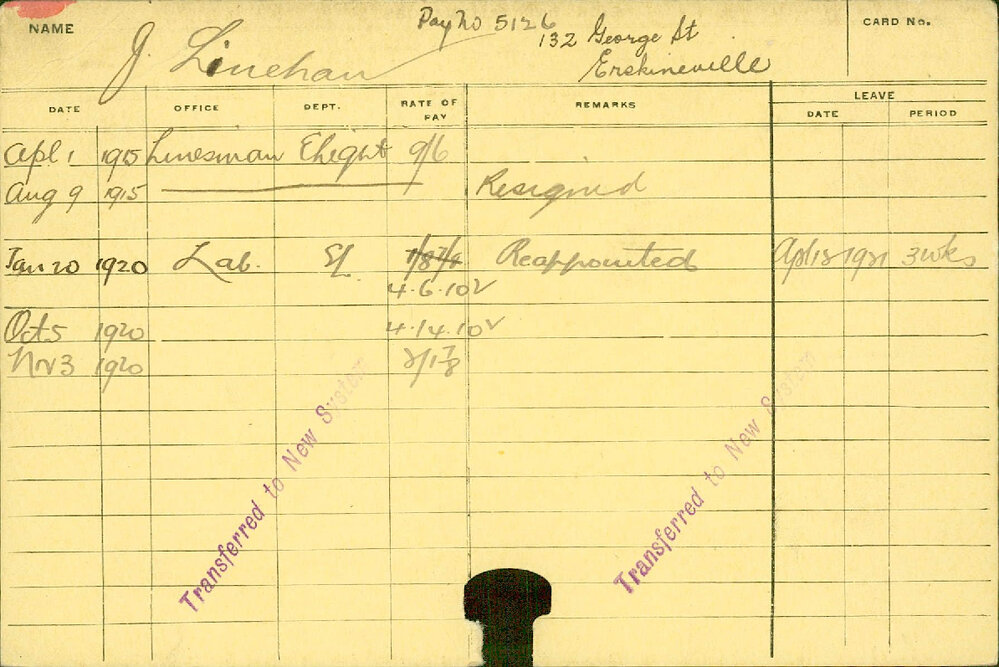 NAME J. Linehan Pay No 5126 132 George St CARD No.
Erskineville
DATE OFFICE DEPT. RATE OF PAY REMARKS LEAVE
DATE PERIOD
Apl 1 1915 Linesman Elight 9/6
Aug 9 1915 Resigned
Jan 20 1920 Lab. El Reappointed Apl 18 1921 3 wks
4.6.10
Oct 5 1920 4.14.10
Nov 3 1920 2/1 7/8
Transferred to New System
Transferred to New System